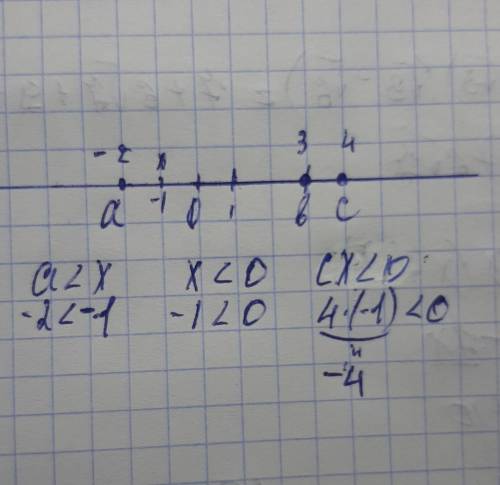 -2 x 3 4
a -1 0 1 b c
a < x x < 0 cx < 0
-2 < -1 -1 < 0 4·(-1) < 0
"
-4